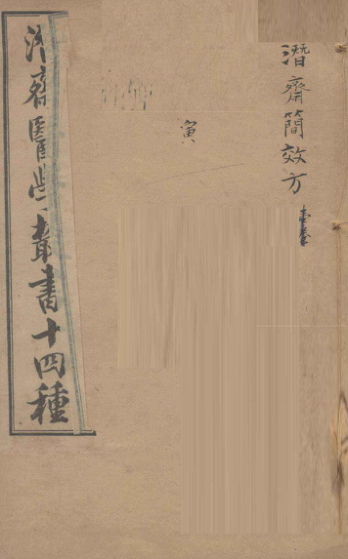 潛齋簡效方
壹卷
寅
潛齋醫學叢書十四種